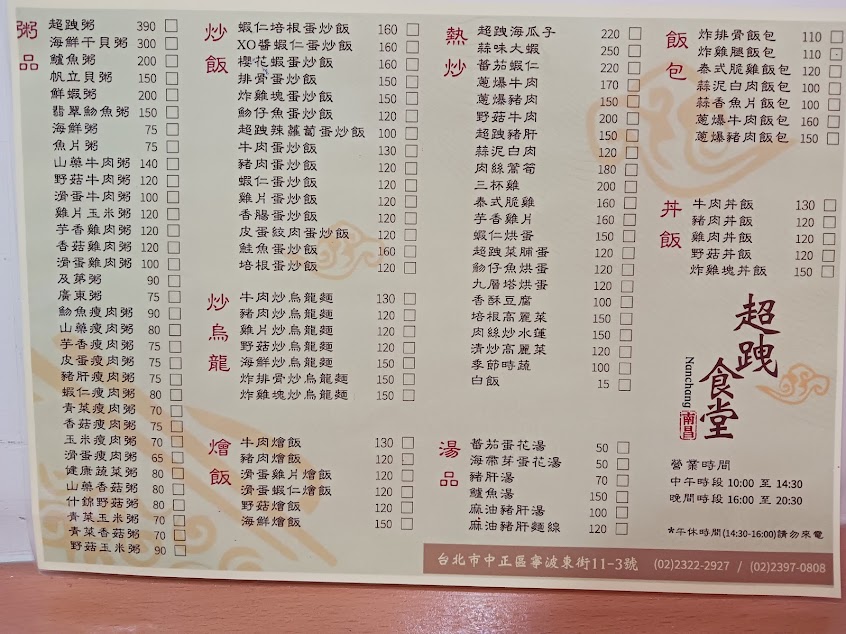 粥品
超跩粥 390
海鮮干貝粥 300
鱸魚粥 200
帆立貝粥 150
鮮蝦粥 200
翡翠魩魚粥 150
海鮮粥 75
魚片粥 75
山藥牛肉粥 140
野菇牛肉粥 120
滑蛋牛肉粥 100
雞片玉米粥 120
芋香雞肉粥 120
香菇雞肉粥 120
滑蛋雞肉粥 100
及第粥 90
廣東粥 75
魩魚瘦肉粥 90
山藥瘦肉粥 80
芋香瘦肉粥 75
皮蛋瘦肉粥 75
豬肝瘦肉粥 75
蝦仁瘦肉粥 80
青菜瘦肉粥 70
香菇瘦肉粥 75
玉米瘦肉粥 70
滑蛋瘦肉粥 65
健康蔬菜粥 80
山藥香菇粥 80
什錦野菇粥 80
青菜玉米粥 70
青菜香菇粥 70
野菇玉米粥 90
炒飯
蝦仁培根蛋炒飯 160
XO醬蝦仁蛋炒飯 160
櫻花蝦蛋炒飯 160
排骨蛋炒飯 150
炸雞塊蛋炒飯 150
魩仔魚蛋炒飯 120
超跩辣蘿蔔蛋炒飯 100
牛肉蛋炒飯 130
豬肉蛋炒飯 120
蝦仁蛋炒飯 120
雞片蛋炒飯 120
香腸蛋炒飯 120
皮蛋絞肉蛋炒飯 120
鮭魚蛋炒飯 160
培根蛋炒飯 120
炒烏龍
牛肉炒烏龍麵 130
豬肉炒烏龍麵 120
雞片炒烏龍麵 120
野菇炒烏龍麵 120
海鮮炒烏龍麵 150
炸排骨炒烏龍麵 150
炸雞塊炒烏龍麵 150
燴飯
牛肉燴飯 130
豬肉燴飯 120
滑蛋雞片燴飯 120
滑蛋蝦仁燴飯 120
野菇燴飯 120
海鮮燴飯 150
熱炒
超跩海瓜子 220
蒜味大蝦 250
番茄蝦仁 220
蔥爆牛肉 170
蔥爆豬肉 150
野菇牛肉 200
超跩豬肝 150
蒜泥白肉 120
肉絲箭筍 180
三杯雞 200
泰式脆雞 160
芋香雞片 160
蝦仁烘蛋 150
超跩菜脯蛋 120
魩仔魚烘蛋 120
九層塔烘蛋 120
香酥豆腐 100
培根高麗菜 150
肉絲炒水蓮 150
清炒高麗菜 120
季節時蔬 100
白飯 15
湯品
番茄蛋花湯 50
海帶芽蛋花湯 50
豬肝湯 70
鱸魚湯 150
麻油豬肝湯 100
麻油豬肝麵線 120
飯包
炸排骨飯包 110
炸雞腿飯包 110
泰式脆雞飯包 120
蒜泥白肉飯包 100
蒜香魚片飯包 100
蔥爆牛肉飯包 160
蔥爆豬肉飯包 150
丼飯
牛肉丼飯 130
豬肉丼飯 120
雞肉丼飯 120
野菇丼飯 120
炸雞塊丼飯 150
超跩食堂
Nanchang 南昌
營業時間
中午時段 10:00 至 14:30
晚間時段 16:00 至 20:30
*午休時間(14:30-16:00)請勿來電
台北市中正區寧波東街11-3號 (02)2322-2927 / (02)2397-0808